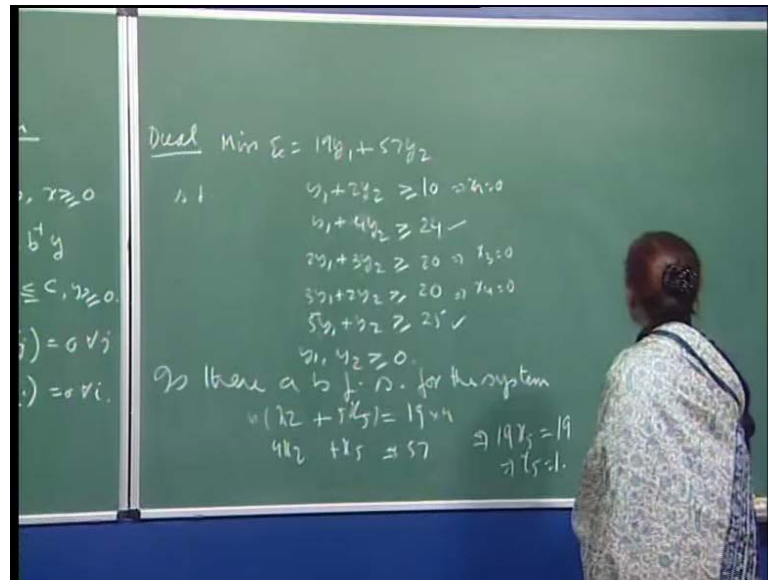 x≥0
b^T y
≤ C, y≥0.
) = 0 ∀j
) = 0 ∀i.
Dual Min = 19y₁ + 57y₂
s.t. y₁ + 2y₂ ≥ 10 ⇒ x₁=0
y₁ + 4y₂ ≥ 24 ✓
2y₁ + 3y₂ ≥ 20 ⇒ x₃=0
3y₁ + 2y₂ ≥ 20 ⇒ x₄=0
5y₁ + y₂ ≥ 25 ✓
y₁, y₂ ≥ 0.
Is there a b.f.s. for the system
(x₂ + 5x₅) = 19×4
4x₂ + x₅ = 57 ⇒ 19x₅ = 19
⇒ x₅ = 1.